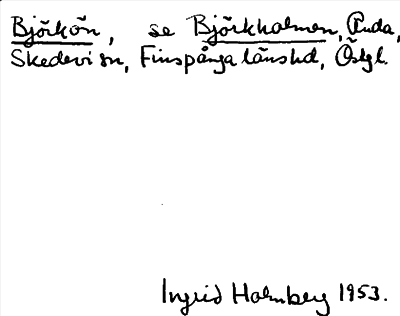 Björkön, se Björkholmen, Ånda,
Skedevi sn, Finspånga länshd, Östgl.
Ingrid Holmberg 1953.